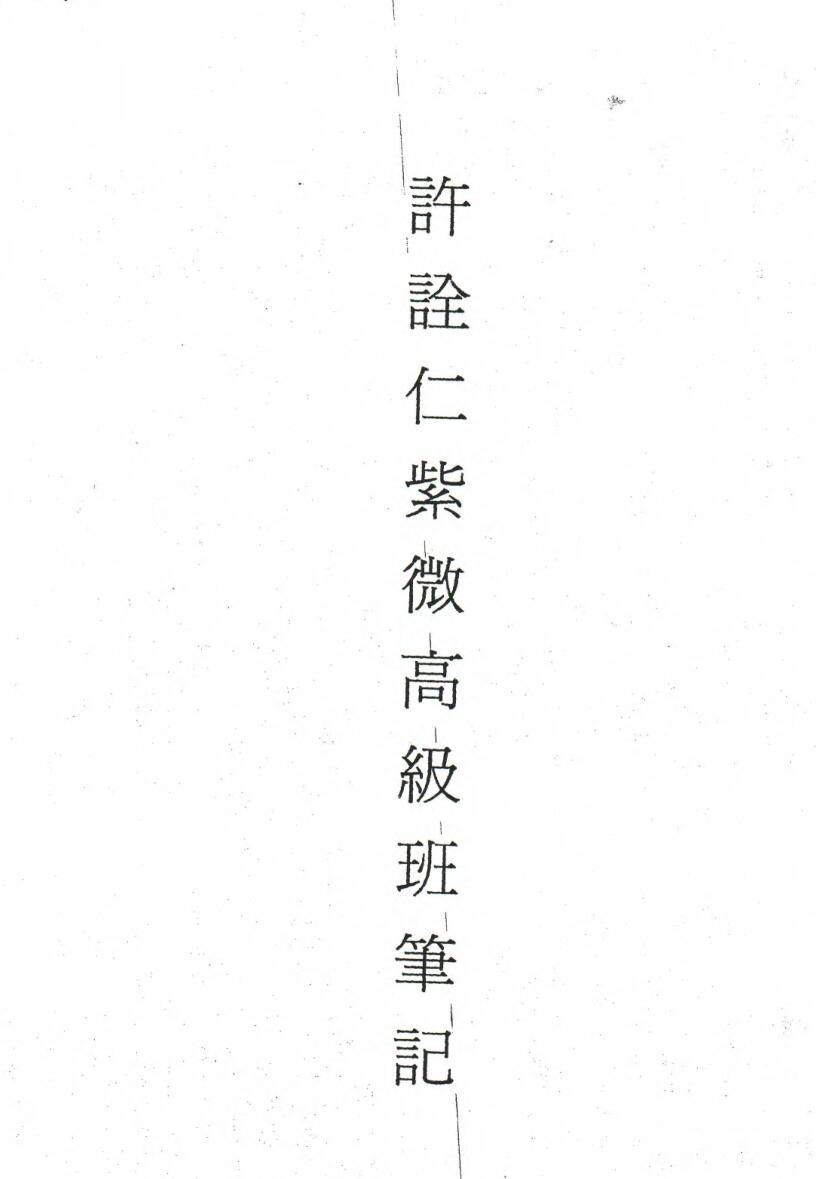 許詮仁紫微高級班筆記